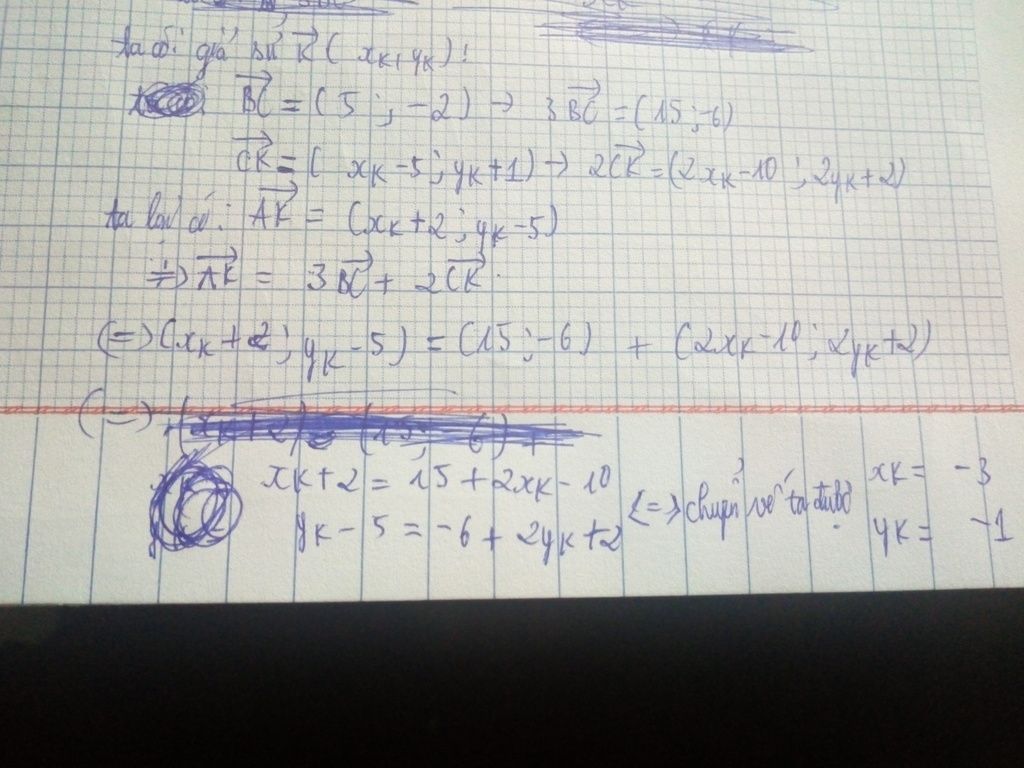 ta có: giả sử K⃗ ( xₖ + yₖ ) :
B͞C⃗ = (5 ; -2) → 3BC⃗ = (15 ; -6)
CK⃗ = ( xₖ - 5 ; yₖ + 1) → 2CK⃗ = (2xₖ - 10 ; 2yₖ + 2)
ta lại có: AK⃗ = (xₖ + 2 ; yₖ - 5)
⇒ AK⃗ = 3BC⃗ + 2CK⃗
(=) (xₖ + 2 ; yₖ - 5) = (15 ; -6) + (2xₖ - 10 ; 2yₖ + 2)
(=)
xₖ + 2 = 15 + 2xₖ - 10
yₖ - 5 = -6 + 2yₖ + 2
<=> chuyển vế ta được
xₖ = -3
yₖ = -1